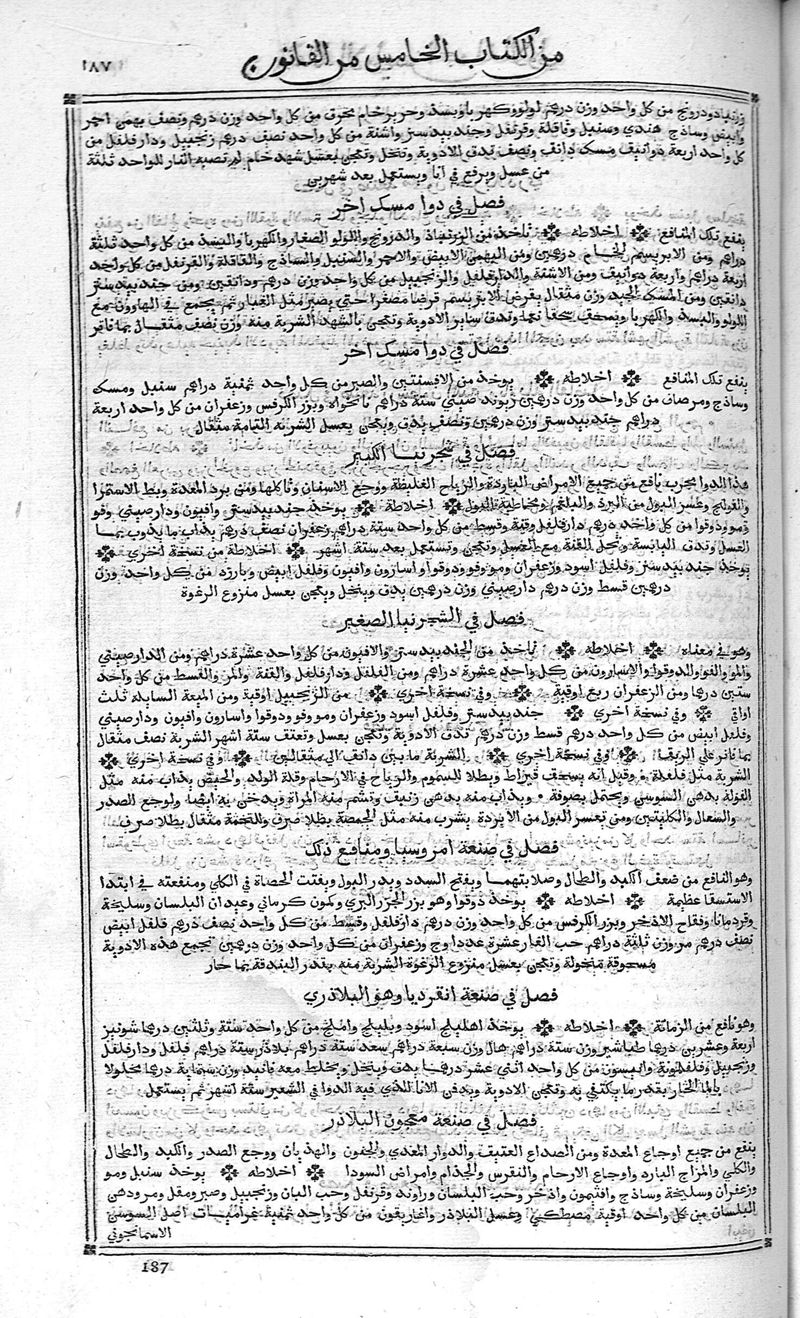 من الكتاب الخامس من القانون
١٨٧
زرنباد ودرونج من كل واحد وزن درهم لولو وكهربا وبسد وحرير خام محرق من كل واحد وزن درهم ونصف بهمن احمر
وابيض وساذج هندي وسنبل وقاقلة وقرنفل وجندبيدستر واشنة من كل واحد نصف درهم زنجبيل ودارفلفل من
كل واحد اربعة دوانيق مسك دانق ونصف تدق الادوية وتنخل وتعجن بعسل شهد خام لم تصبه النار للواحد ثلثة
من عسل ويرفع في انا ويستعمل بعد شهرين
فصل في دوا مسك اخر
ينفع تلك المنافع اخلاطه ياخذ من الزرنباد والدرونج واللولو الصغار والكهربا والبسد من كل واحد ثلثة
دراهم ومن الابريسم الخام درهمين ومن البهمن الابيض والاحمر والسنبل والساذج والقاقلة والقرنفل من كل واحد
اربعة دراهم واربعة دوانيق ومن الاشنة والدارفلفل والزنجبيل من كل واحد وزن درهم ودانقين ومن جندبيدستر
دانقين ومن المسك الجيد وزن مثقال يقرض الابريسم قرضا مصغرا حتي يصير مثل الغبار ثم يجمع في الهاوون مع
اللولو والبسد والكهربا ويسحق سحقا نعما وتدق ساير الادوية وتعجن بالشهد الشربة منه وزن نصف مثقال بما فاتر
فصل في دوا مسك اخر
ينفع تلك المنافع اخلاطه يوخذ من الافسنتين والصبر من كل واحد ثمنية دراهم سنبل ومسك
وساذج ومر صاف من كل واحد وزن درهمين زبوند صيني ستة دراهم نانخواه وبزر الكرفس وزعفران من كل واحد اربعة
دراهم جندبيدستر وزن درهمين ونصف يدق ويعجن بعسل الشربة التامة مثقال
فصل في شجرنيا الكبير
هذا الدوا مجرب نافع من جميع الامراض الباردة والرياح الغليظة ووجع الاسنان وتاكلها ومن برد المعدة وبط الاستمرا
والقولنج وعسر البول من البرد والبلغم ومخاطية البول اخلاطه يوخذ جندبيدستر وافيون ودارصيني وفو
ومو ودوقوا من كل واحد درهم دارفلفل وقنة وقسط من كل واحد ستة دراهم زعفران نصف درهم يذاب ما يذوب بما
العسل وتدق اليابسة وتنحل القنة مع العسل وتعجن وتستعمل بعد ستة اشهر اخلاطه من نسخة اخري
يوخذ جندبيدستر وفلفل اسود وزعفران ومو وفو ودوقوا واسارون وافيون وفلفل ابيض وبارزد من كل واحد وزن
درهمين قسط وزن درهم دارصيني وزن درهمين يدق وينخل ويعجن بعسل منزوع الرغوة
فصل في الشجرنيا الصغير
وهو في معناه اخلاطه ياخذ من الجندبيدستر والافيون من كل واحد عشرة دراهم ومن الدارصيني
والمو والفو والدوقوا والاسارون من كل واحد عشرة دراهم ومن الفلفل ودارفلفل والقنة والمر والقسط من كل واحد
ستين درهما ومن الزعفران ربع اوقية وفي نسخة اخري من الزنجبيل اوقية ومن الميعة السايلة ثلث
اواقي وفي نسخة اخري جندبيدستر وفلفل اسود وزعفران ومو وفو ودوقوا واسارون وافيون ودارصيني
وفلفل ابيض من كل واحد درهم قسط وزن درهم تدق الادوية وتعجن بعسل وتعتق ستة اشهر الشربة نصف مثقال
بما فاتر علي الريق وفي نسخة اخري الشربة ما بين دانق الي مثقالين وفي نسخة اخري
الشربة مثل فلفلة وقيل انه يسحق قيراط وبطلا للسموم والرياح في الارحام وقلة الولد والحيض يذاب منه مثل
الفولة بدهن السوسن ويحتمل بصوفة ويذاب منه بدهن زنبق وتشم منه المراة ويدخن به ايضا ولوجع الصدر
والسعال والكليتين ومن تعسر البول من الابردة يشرب منه مثل الحمصة بطلا صرف وللتخمة مثقال بطلا صرف
فصل في صنعة امروسيا ومنافع ذلك
وهو النافع من ضعف الكبد والطحال وصلابتهما ويفتح السدد ويدر البول ويفتت الحصاة في الكلي ومنفعته في ابتدا
الاستسقا عظيمة اخلاطه يوخذ دوقوا وهو بزر الجزر البري وكمون كرماني وعيدان البلسان وسليخة
وقردمانا وفقاح الاذخر وبزر الكرفس من كل واحد وزن درهم دارفلفل وقسط من كل واحد نصف درهم فلفل ابيض
نصف درهم مر وزن ثلثة دراهم حب الغار عشرة عددا وج وزعفران من كل واحد وزن درهمين تجمع هذه الادوية
مسحوقة منخولة وتعجن بعسل منزوع الرغوة الشربة منه بقدر البندقة بما حار
فصل في صنعة انقرديا وهو البلاذري
وهو نافع من الزمانة اخلاطه يوخذ اهليلج اسود وبليلج واملج من كل واحد ستة وثلثين درهما شونيز
اربعة وعشرين درهما طباشير وزن ستة دراهم هال وزن سبعة دراهم سعد ستة دراهم بلاذر ستة دراهم فلفل ودارفلفل
وزنجبيل وفلفلمونة وانيسون من كل واحد اثني عشر درهما يدق وينخل ويخلط معه فانيد وزن ستماية درهم محلولا
بالما الحار بقدر ما يكتفي به وتعجن الادوية ويدفن الانا الذي فيه الدوا في الشعير ستة اشهر ثم يستعمل
فصل في صنعة معجون البلاذر
ينفع من جميع اوجاع المعدة ومن الصداع العتيق والدوار المعدي والجنون والهذيان ووجع الصدر والكبد والطحال
والكلي والمزاج البارد واوجاع الارحام والنقرس والجذام وامراض السودا اخلاطه يوخذ سنبل ومو
وزعفران وسليخة وساذج وافتيمون واذخر وحب البلسان وراوند وقرنفل وحب البان وزنجبيل وصبر ومقل ومر ودهن
البلسان من كل واحد اوقية مصطكي وعسل البلاذر وغاريقون من كل واحد ثمنية غراميات اصل السوسن
الاسمانجوني
187